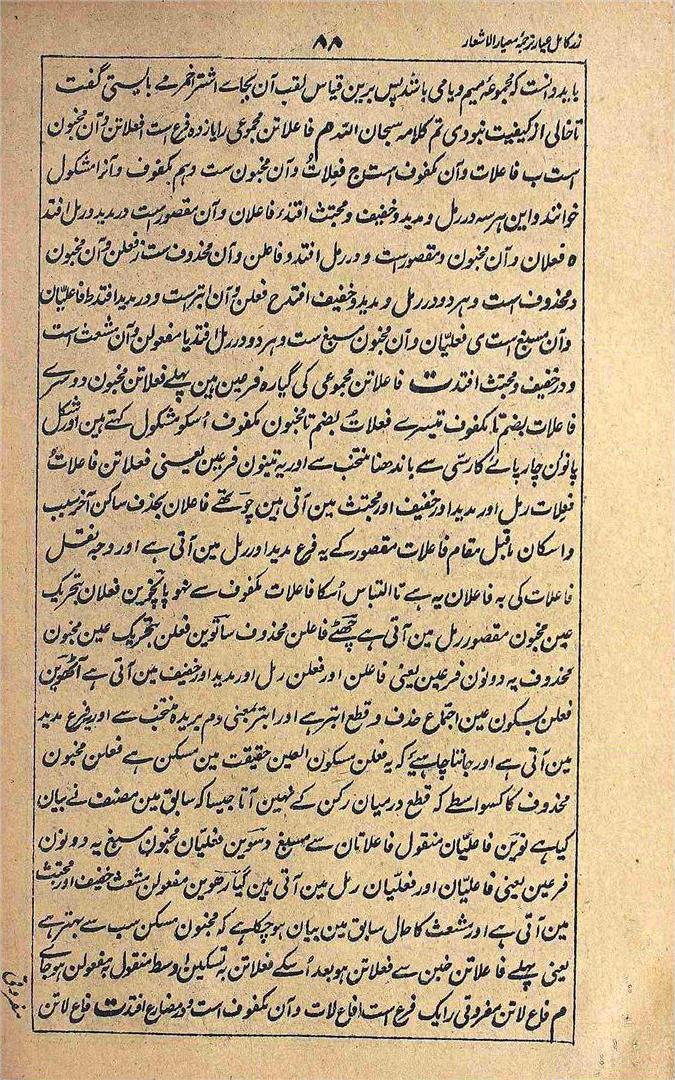 زر کامل عیار ترجمۂ معیار الاشعار ۸۸
باید دانست کہ مجموعۂ میم و یا می باشد پس برین قیاس لقب آن بجاے اشتر اخرم مے بایستی گفت
تا خالی از کیفیت نبودی تم کلامہ سبحان اللہ م فاعلاتن مجموعی را یازدہ فرع است ا فعلاتن و آن مخبون
است ب فاعلات و آن مکفوف است ج فعلاتُ و آن مخبون ست و ہم مکفوف و آنرا مشکول
خوانند و این ہر سہ در رمل و مدید و خفیف و مجتث افتد د فاعلان و آن مقصور است در مدید و رمل افتد
ہ فعلان و آن مخبون و مقصور است و در رمل افتد و فاعلن و آن محذوف ست ز فعلن و آن مخبون
و محذوف است و ہر دو در رمل و مدید و خفیف افتد ح فعلن و آن ابتر ست و در مدید افتد ط فاعلیّان
و آن مسبغ است ی فعلیّان و آن مخبون مسبغ ست و ہر دو در رمل افتد یا مفعولن و آن مشعث است
و در خفیف و مجتث افتد ت فاعلاتن مجموعی کی گیارہ فرعین ہین پہلے فعلاتن مخبون دوسرے
فاعلات بضم تا مکفوف تیسرے فعلاتُ بضم تا مخبون مکفوف اسکو مشکول کہتے ہین اور شکل
پانون چارپائے کا رسّی سے باندھنا منتخب سے اور یہ تینون فرعین یعنی فعلاتن فاعلاتُ
فعلات رمل اور مدید اور خفیف اور مجتث مین آتی ہین چوتھے فاعلان بحذف ساکن آخر سبب
و اسکان ماقبل مقام فاعلات مقصور کے یہ فرع مدید اور رمل مین آتی ہے اور وجہ نقل
فاعلات کی بہ فاعلان یہ ہے تا التباس اسکا فاعلات مکفوف سے نہو پانچوین فعلان بتحریک
عین مخبون مقصور رمل مین آتی ہے چھٹے فاعلن محذوف ساتوین فعلن بتحریک عین مخبون
محذوف یہ دونون فرعین یعنی فاعلن اور فعلن رمل اور مدید اور خفیف مین آتی ہے آٹھوین
فعلن بسکون عین اجتماع حذف و قطع ابتر ہے اور ابتر بمعنی دم بریدہ منتخب سے اور یہ فرع مدید
مین آتی ہے اور جاننا چاہیئے کہ یہ فعلن بسکون العین حقیقت مین مسکن ہے فعلن مخبون
محذوف کا کسواسطے کہ قطع درمیان رکن کے نہین آتا جیسا کہ سابق مین مصنف نے بیان
کیا ہے نوین فاعلیّان منقول فاعلاتان سے مسبغ دسوین فعلیّان مخبون مسبغ یہ دونون
فرعین یعنی فاعلیّان اور فعلیّان رمل مین آتی ہین گیارھوین مفعولن مشعث خفیف اور مجتث
مین آتی ہے اور مشعث کا حال سابق مین بیان ہو چکا ہے کہ مخبون مسکن سب سے بہتر ہے
یعنی پہلے فاعلاتن خبن سے فعلاتن ہو بعد اُسکے فعلاتن بہ تسکین اوسط منقول بہ مفعولن ہو جاے
م فاع لاتن مفروقی را یک فرع است ا فاع لات و آن مکفوف است و در مضارع افتد ت فاع لاتن
مفروقی